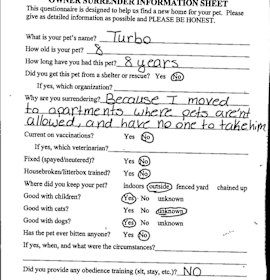 OWNER SURRENDER INFORMATION SHEET
This questionnaire is designed to help us find a new home for your pet. Please
give as detailed information as possible and PLEASE BE HONEST.
What is your pet's name? Turbo
How old is your pet? 8
How long have you had this pet? 8 years
Did you get this pet from a shelter or rescue? Yes No
If yes, which organization?
Why are you surrendering? Because I moved
to apartments where pets aren't
allowed, and have no one to take him
Current on vaccinations? Yes No
If yes, which veterinarian?
Fixed (spayed/neutered)? Yes No
Housebroken/litterbox trained? Yes No
Where did you keep your pet? indoors outside fenced yard chained up
Good with children? Yes No unknown
Good with cats? Yes No unknown
Good with dogs? Yes No unknown
Has the pet ever bitten anyone? Yes No
If yes, when, and what were the circumstances?
Did you provide any obedience training (sit, stay, etc.)? NO